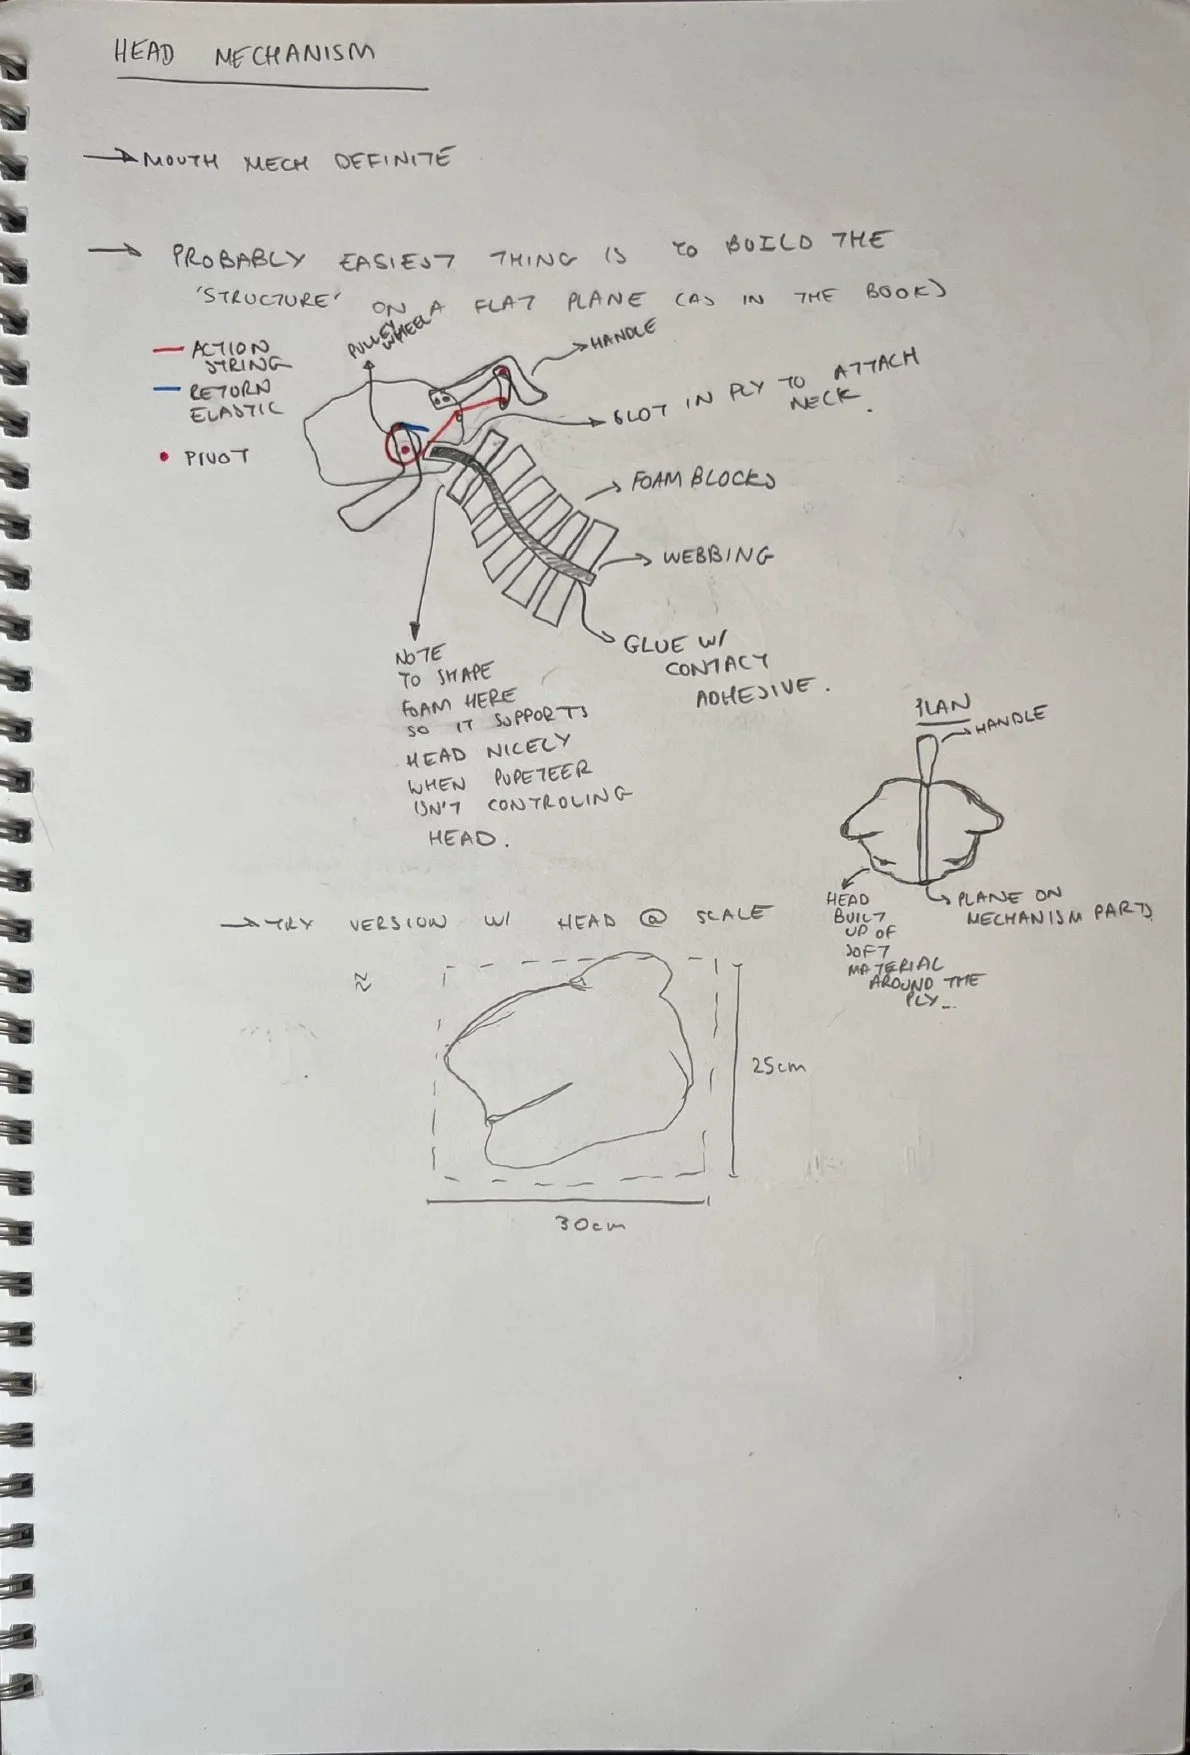 HEAD MECHANISM
→ MOUTH MECH DEFINITE
→ PROBABLY EASIEST THING IS TO BUILD THE
'STRUCTURE' ON A FLAT PLANE (AS IN THE BOOK)
ACTION
STRING
RETURN
ELASTIC
PIVOT
PULLEY
WHEEL
HANDLE
SLOT IN PLY TO ATTACH
NECK.
FOAM BLOCKS
WEBBING
GLUE W/
CONTACT
ADHESIVE.
NOTE
TO SHAPE
FOAM HERE
SO IT SUPPORTS
HEAD NICELY
WHEN PUPETEER
ISN'T CONTROLING
HEAD.
PLAN
HANDLE
HEAD
BUILT
UP OF
SOFT
MATERIAL
AROUND THE
PLY...
PLANE ON
MECHANISM PARTS
→ TRY VERSION W/ HEAD @ SCALE
≈
25cm
30cm